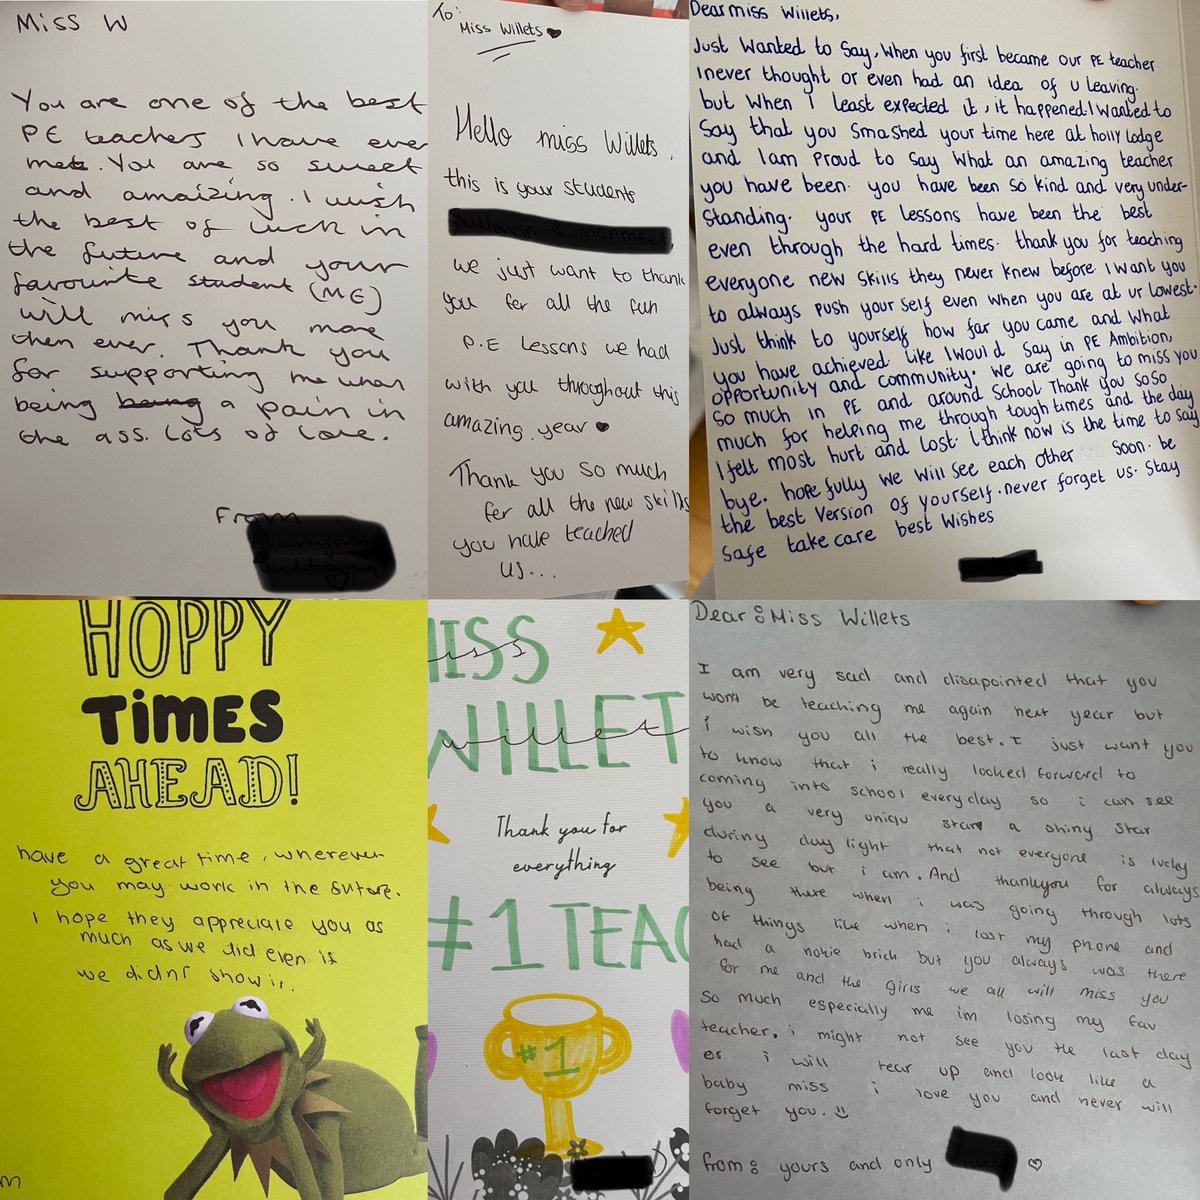 Miss W
You are one of the best
PE teachers I have ever
met. You are so sweet
and amaizing. I wish
the best of luck in
the future and your
favourite student (ME)
will miss you more
then ever. Thank you
for supporting me when
being a pain in
the ass. Lots of love.
From
To:
Miss Willets ♥
Hello miss Willets,
this is your students
we just want to thank
you for all the fun
P.E Lessons we had
with you throughout this
amazing year ♥
Thank you so much
for all the new skills
you have teached
us...
Dear miss Willets,
Just Wanted to Say, When you first became our PE teacher
I never thought or even had an idea of u leaving.
but When I least expected it, it happened. I Wanted to
Say that you Smashed your time here at holly Lodge
and I am Proud to Say What an amazing teacher
you have been. you have been so kind and very under-
standing. your PE Lessons have been the best
even through the hard times. thank you for teaching
everyone new skills they never knew before. I want you
to always push your self even when you are at ur lowest.
Just think to yourself how far you came and what
you have achieved. Like I Would Say in PE Ambition,
opportunity and community. We are going to miss you
So much in PE and around School Thank you so so
much for helping me through tough times and the day
I felt most hurt and Lost. i think now is the time to say
bye. hope fully we will see each other Soon. be
the best version of yourself. never forget us. Stay
safe take care best Wishes
HOPPY
TiMES
AHEAD!
have a great time, wherever
you may work in the future.
I hope they appreciate you as
much as we did even if
we didnt show it.
m
MISS
iss
WILLET
willet
Thank you for
everything
#1 TEAC
#1
Dear: Miss Willets
I am very sad and disapointed that you
wont be teaching me again next year but
i wish you all the best. I just want you
to know that i really looked forward to
coming into school everyday so i can see
you a very uniqu star a shiny star
during day light that not everyone is lucky
to see but i am. And thankyou for always
being there when i was going through lots
of things like when i lost my phone and
had a nokie brick but you always was there
for me and the girls we all will miss you
so much especially me im losing my fav
teacher. i might not see you the last day
or i will tear up and look like a
baby miss i love you and never will
forget you.
from: yours and only ♡